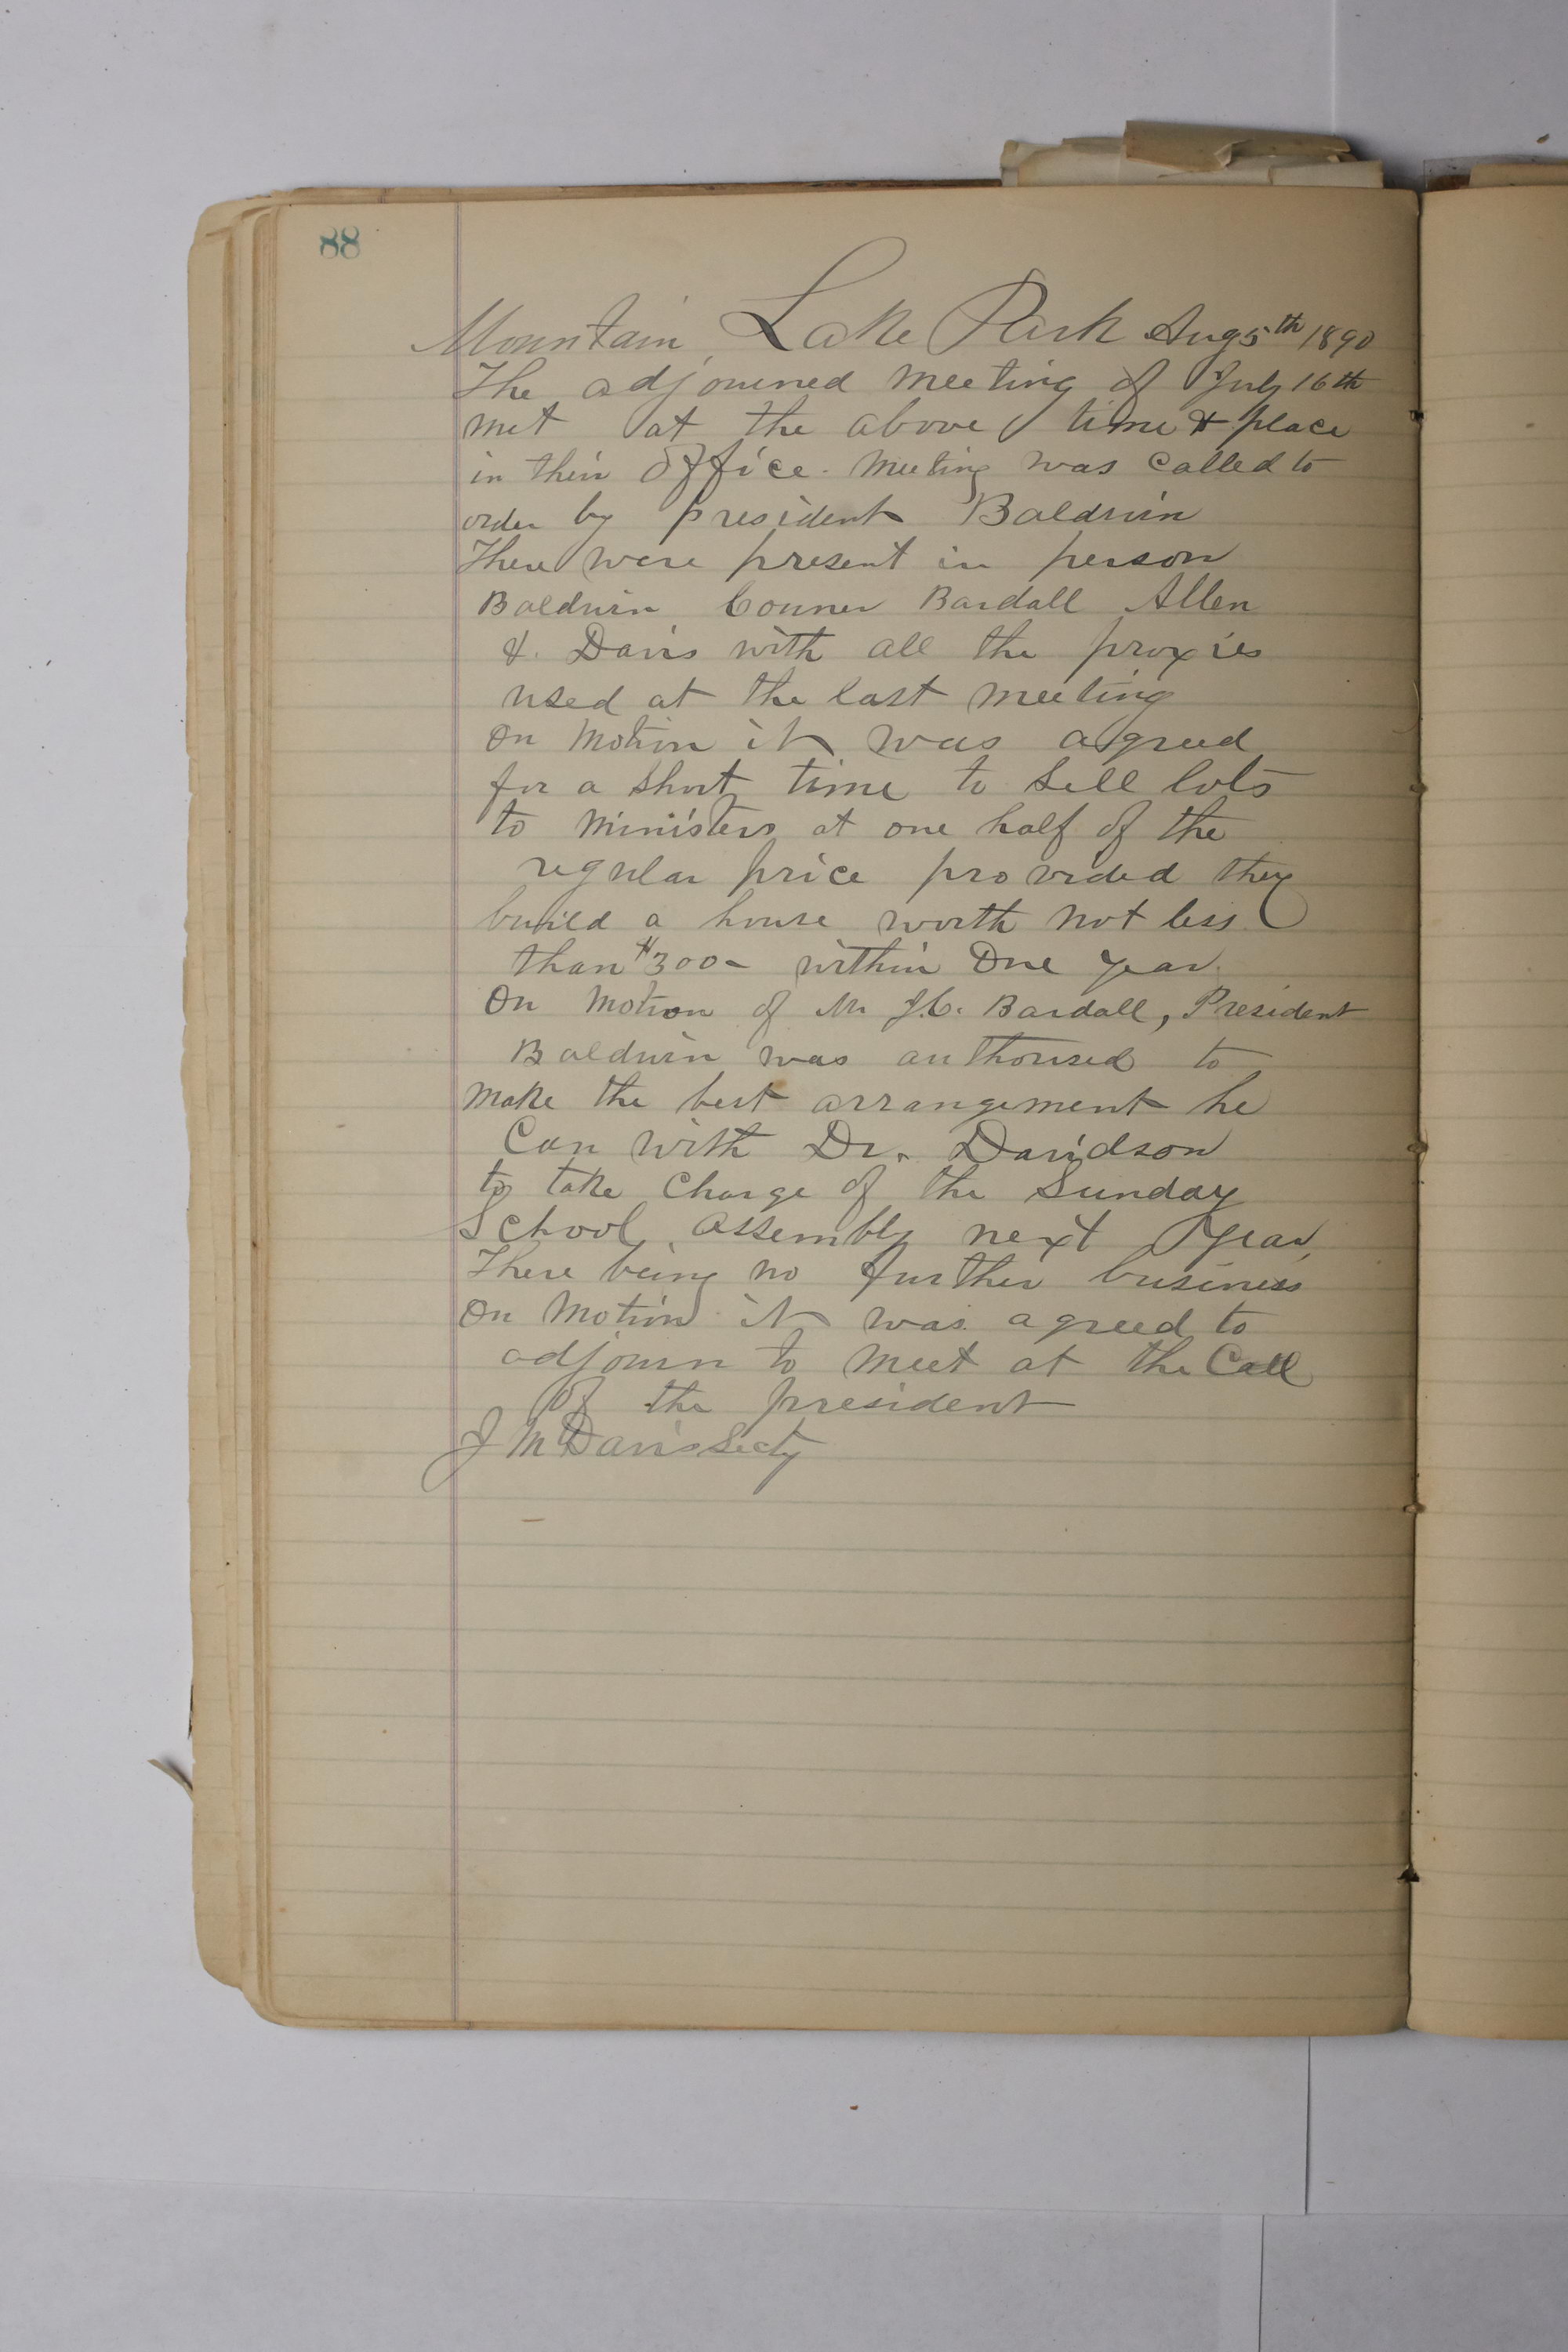 88
Mountain Lake Park Aug 5th 1890
The adjourned meeting of July 16th
met at the above time & place
in their office. Meeting was called to
order by president Baldwin
There were present in person
Baldwin Conner Bardall Allen
& Davis with all the proxies
used at the last meeting
On Motion it was agreed
for a short time to sell lots
to Ministers at one half of the
regular price provided they
build a house worth not less
than $300- within One year.
On Motion of Mr J.C. Bardall, President
Baldwin was authorised to
make the best arrangement he
Can with Dr. Davidson
to take Charge of the Sunday
School assembly next Year,
There being no further business
On Motion it was agreed to
adjourn to meet at the Call
of the president
J M Davis Secty